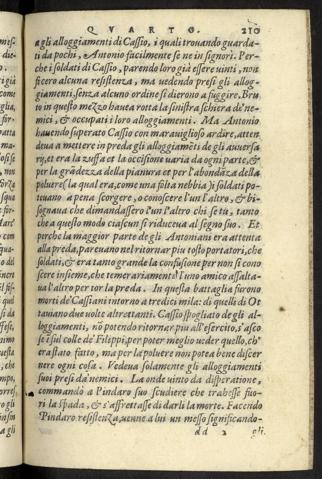 QVARTO. 210
agli alloggiamenti di Cassio, i quali trouando guarda-
ti da pochi, Antonio facilmente se ne insignori. Per-
che i soldati di Cassio, parendo loro già essere uinti, non
ficero alcuna resistenza, ma uedendo presi gli allog-
giamenti, senza alcuno ordine si dierono a fuggire. Bru
to in questo mezzo haueа rotta la sinistra schiera de'ne-
mici, & occupati i loro alloggiamenti. Ma Antonio
hauendo superato Cassio con marauiglioso ardire, atten
deua a mettere in preda gli alloggiamẽti de gli auuersa
ry, et era la zuffa et la occisione uaria da ogni parte, &
per la grãdezza della pianura et per l'abondãza della
poluere (la qual era, come una folta nebbia) i soldati po-
teuano a pena scorgere, o conoscere l'un l'altro, & bi-
sognaua che dimandassero l'un l'altro chi se tu, tanto
che a questo modo ciascun si riduceua al segno suo. Et
perche la maggior parte de gli Antoniani era attenta
alla preda, pareuano nel ritornar piu tosto portatori, che
soldati, & era tanto grande la confusione per non si cono
scere insieme, che temerariamente l'uno amico assalta-
ua l'altro per tor la preda. In questa battaglia furono
morti de' Cassiani intorno a tredici mila: di quelli di Ot
tauiano due uolte altrettanti. Cassio spogliato de gli al-
loggiamenti, nõ potendo ritornar piu all'esercito, s'asco
se i sul colle de' Filippi, per poter meglio ueder quello, ch'
era stato fatto, ma per la poluere non potea bene discer
nere ogni cosa. Vedeua solamente gli alloggiamenti
suoi presi da' nemici. La onde uinto da disperatione,
commandò a Pindaro suo scudiere che trahesse fuo-
ri la spada, & s'affrettasse di darli la morte. Facendo
Pindaro resistenza, uenne a lui un messo significando-
dd 2 gli